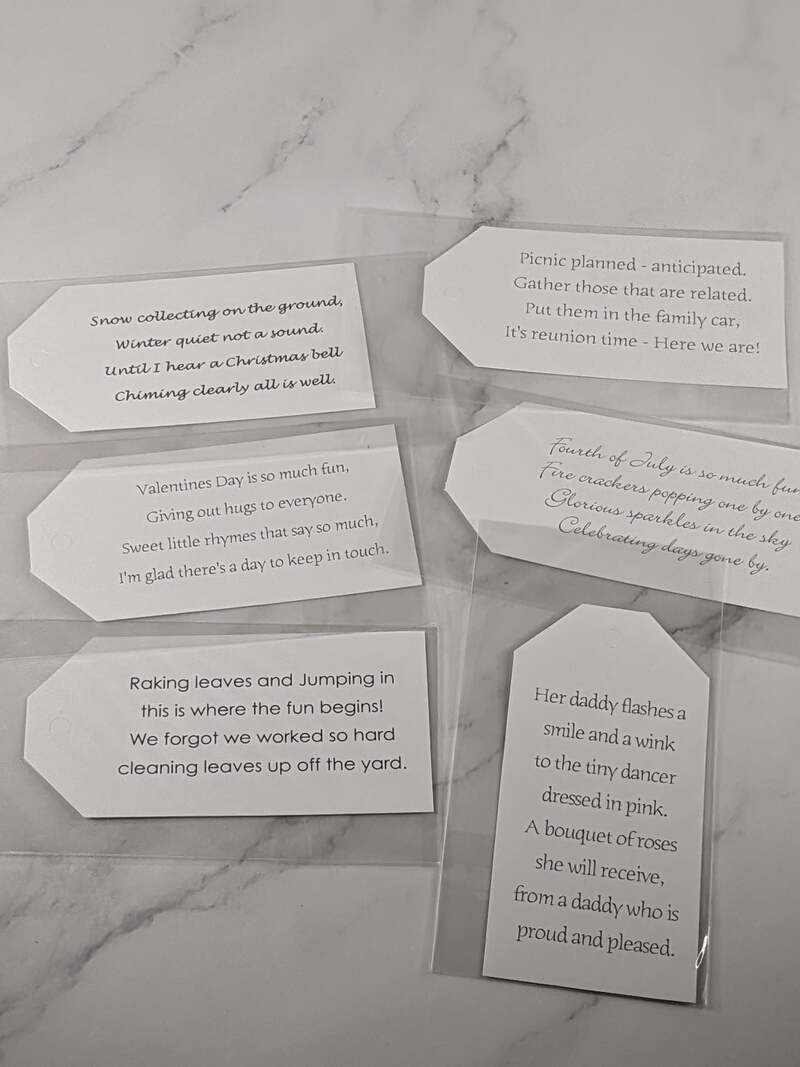 Snow collecting on the ground,
Winter quiet not a sound.
Until I hear a Christmas bell
Chiming clearly all is well.
Picnic planned - anticipated.
Gather those that are related.
Put them in the family car,
It's reunion time - Here we are!
Valentines Day is so much fun,
Giving out hugs to everyone.
Sweet little rhymes that say so much,
I'm glad there's a day to keep in touch.
Fourth of July is so much fun
Fire crackers popping one by one
Glorious sparkles in the sky
Celebrating days gone by.
Raking leaves and Jumping in
this is where the fun begins!
We forgot we worked so hard
cleaning leaves up off the yard.
Her daddy flashes a
smile and a wink
to the tiny dancer
dressed in pink.
A bouquet of roses
she will receive,
from a daddy who is
proud and pleased.